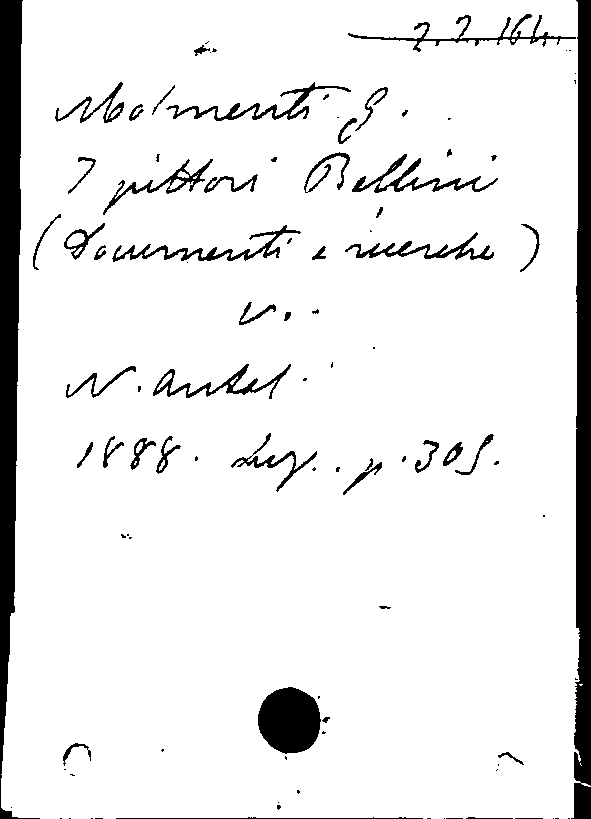 7. 7. 164.
Molmenti G.
I pittori Bellini
(Documenti e ricerche)
V. -
N. Antol.
1888. Lug. . p. 305.